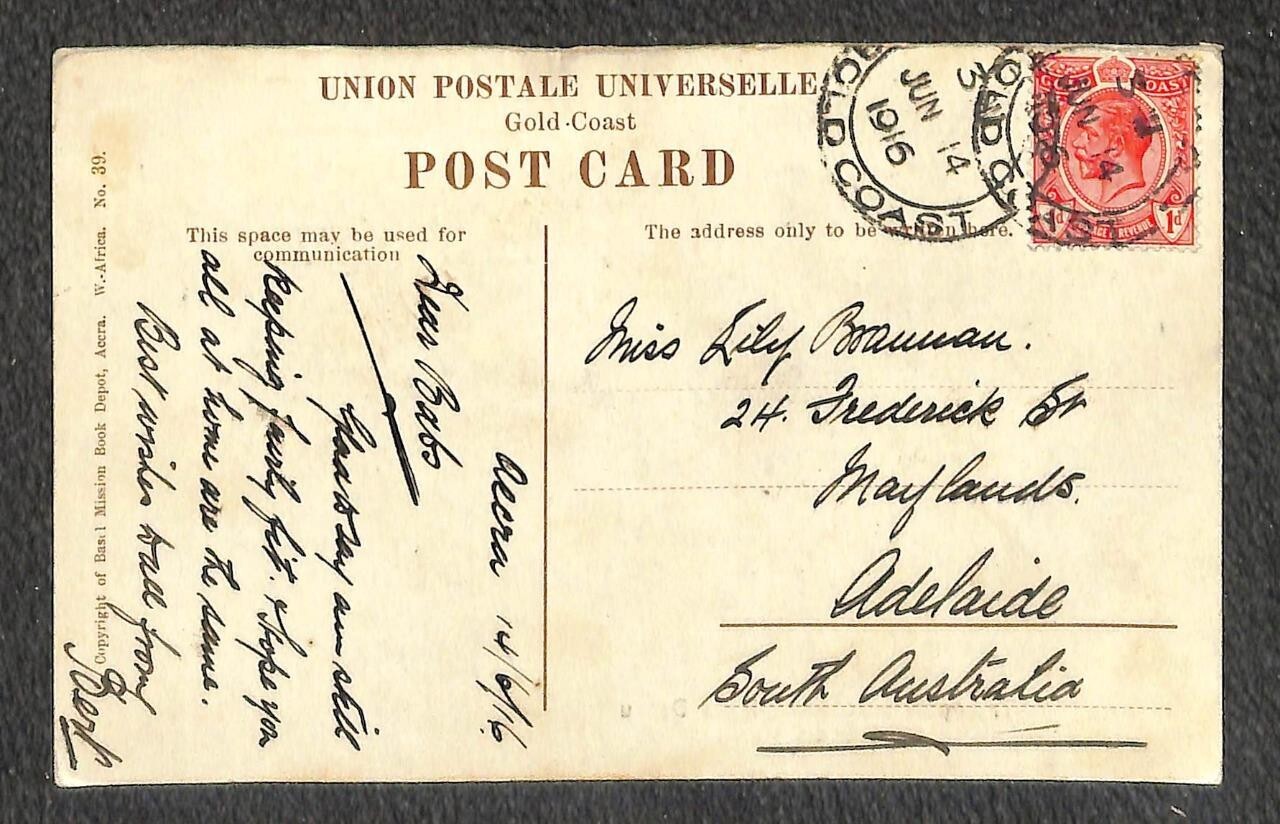 UNION POSTALE UNIVERSELLE
Gold-Coast
POST CARD
This space may be used for
communication
The address only to be written here.
Copyright of Basel Mission Book Depot, Accra. W.-Africa. No. 39.
GOLD COAST
3
JUN 14
1916
GOLD COAST
JUN 14
GOLD COAST
1d
1d
Accra 14/6/16
Dear Babs
Glad to say am still
keeping fairly fit. Hope you
all at home are the same.
Best wishes to all from
Bert
Miss Lily Brannan.
24. Frederick St
Maylands.
Adelaide
South Australia